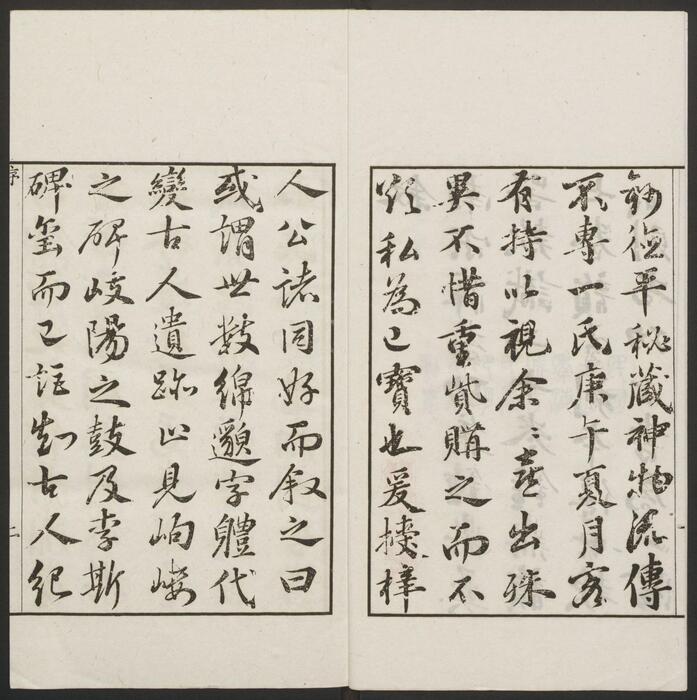 平秘藏神物流傳
不專一氏庚午夏月客
有持以視余〻喜出殊
異不惜重貲購之而不
敢私為己寶也爰授梓
人公諸同好而叙之曰
或謂世數綿邈字軆代
變古人遺跡止見岣嶁
之碑岐陽之鼓及李斯
碑璽而已詎知古人紀
序
二